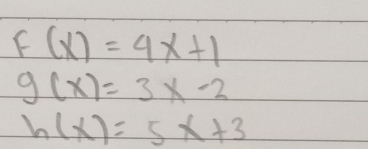 F(x) = 4x+1
g(x) = 3x-2
h(x) = 5x+3